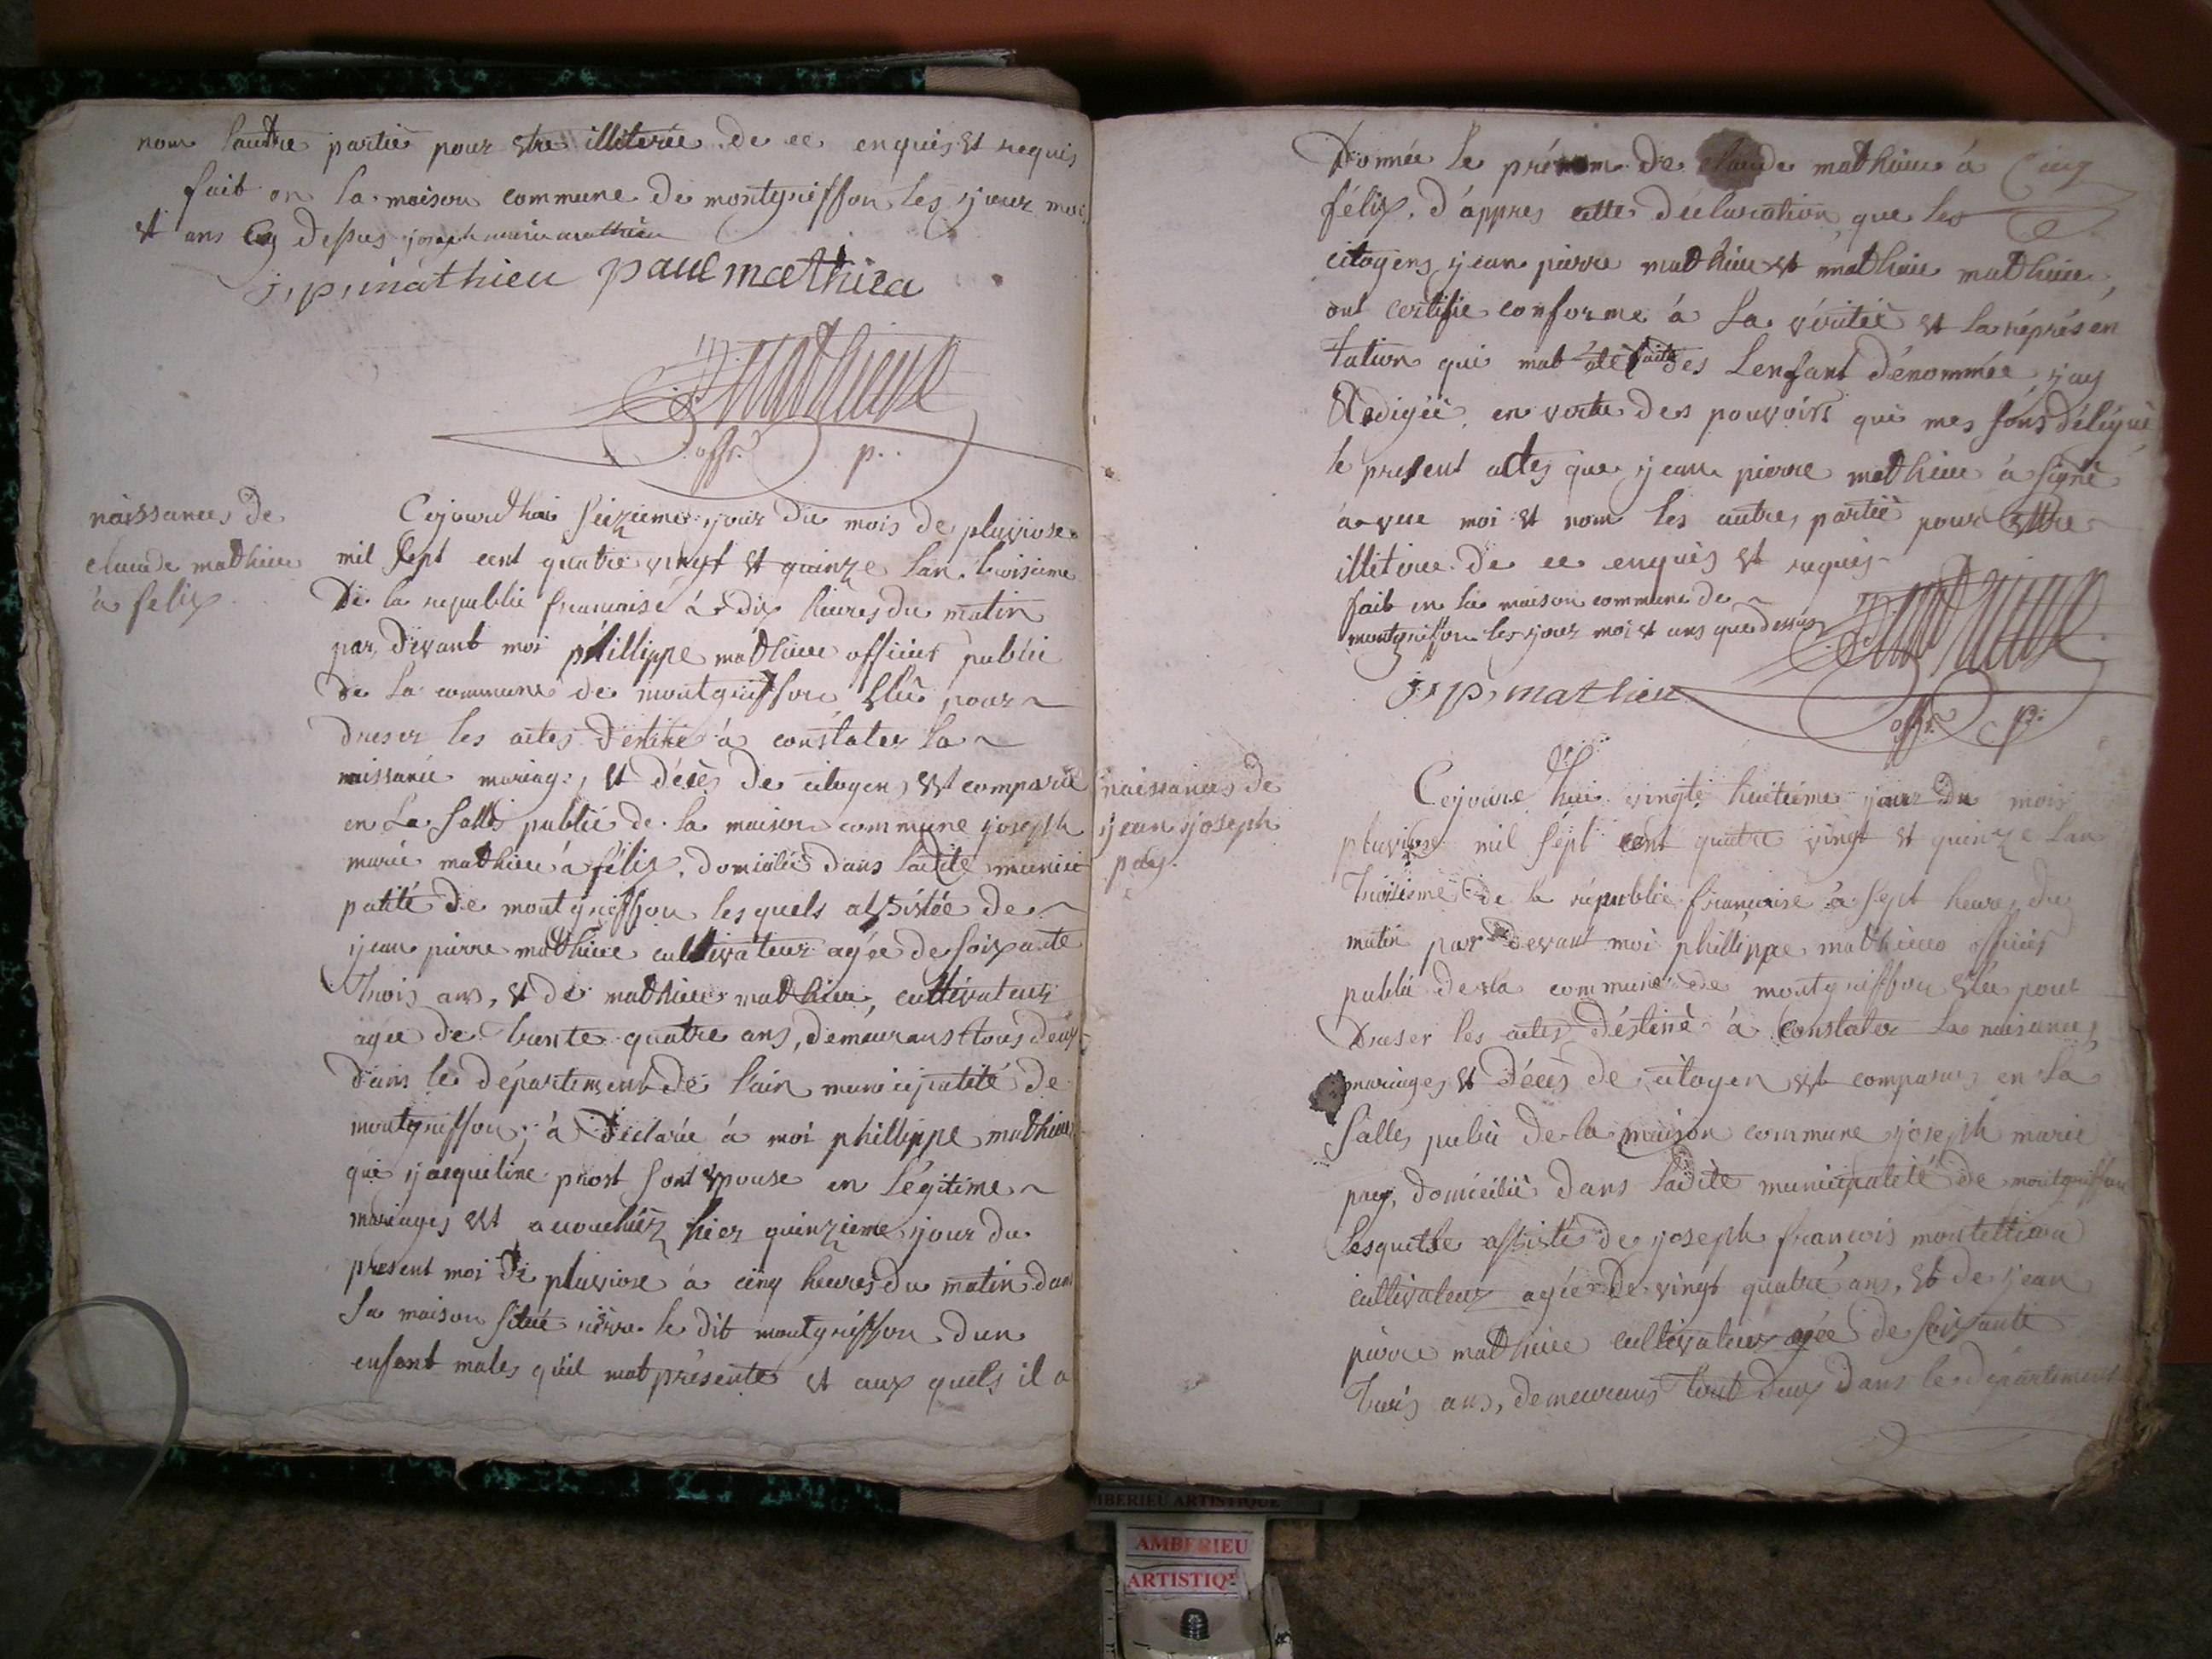 nom lautre partiè pour etre illiterée de ce enquis et requis
fait en la maison commune de montgriffon les jour mois
et ans que dessus joseph marie mathieu
j, p, mathieu paul mathieu
offr. p.
naissances de
claude mathieu
à felix
Cejourdhui seizieme jour du mois de pluviose
mil sept cent quatre vingt et quinze lan troisieme
De la republic francaise à dix heures du matin
par devant moi phillippe mathieu officier public
de la commune de montgriffon élu pour
dreser les actes destiné à constater la
naissance mariage, et décès de citoyen est comparu
en La Salle public de la maison commune joseph
marie mathieu à félix, domicilié dans ladite munici
palité de montgriffon les quels assistée de
jean pierre mathieu cultivateur agée de soixante
Trois ans, et de mathieu mathieu, cultivateur
agée de trente quatre ans, demeurans tous deux
dans le département de lain municipalité de
montgriffon; à déclarée à moi phillippe mathieu
que jacqueline prost sont epouse en Légitime
mariages est accouchéz hier quinzieme jour du
present moi de pluviose à cinq heures du matin dans
Sa maison situé rierre le dit montgriffon dun
enfant males quil mat présenté et aux quels il a
Donnée le prénom de claude mathieu à
félix, d'appres cette déclaration que les
citoyens jean pierre mathieu et mathieu mathieu,
ont certifie conforme à La véritée et la représen
tation qui mat été faite des Lenfant dénommée, jay
Redigée, en vertu des pouvoirs qui mes sons délégué
le present actes que jean pierre mathieu à signé
avec moi et nom les autres partiè pour etre
illiterée de ce enquis et requis
fait en la maison commune de
montgriffon les jour moi et ans que dessus
j, p, mathieu
offr. p.
naissances de
jean joseph
pay.
Cejourd hui vingte huitième jour du mois
pluviose mil sept cent quatre vingt et quinze lan
troisieme de la républic francaise à sept heures du
matin par devant moi phillippe mathieu officier
public de la commune de montgriffon élu pour
Dreser les actes déstiné à constater la naisances
mariages et Décès de citoyen est comparus en la
salles public de la maison commune joseph marie
pay, domicilié dans ladite municipalité de montgriffon
lesquelle assisté de joseph francois
cultivateur agée de vingt quatre ans, et de jean
pierre mathieu cultivateur agée de soixante
trois ans, demeurans tout deux dans le département
AMBERIEU ARTISTIQUE
AMBERIEU
ARTISTIQ